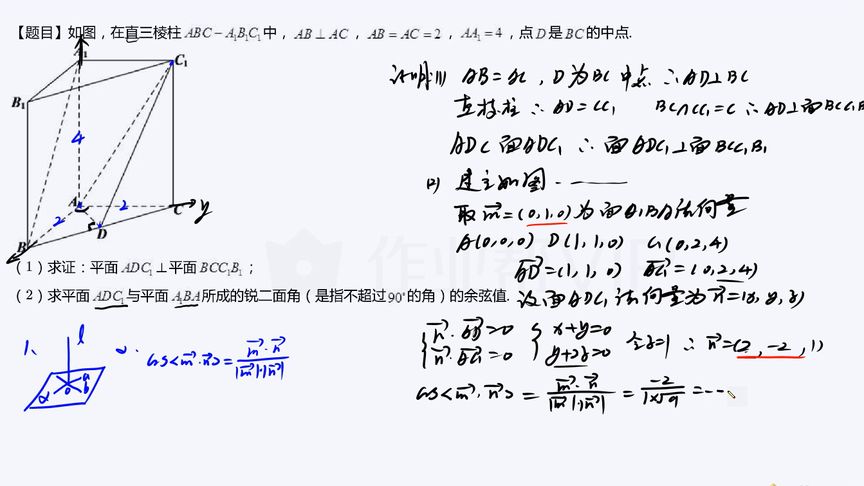 【题目】如图，在直三棱柱 ABC－A₁B₁C₁ 中， AB⊥AC ， AB=AC=2 ， AA₁=4 ，点 D 是 BC 的中点.
A₁
C₁
B₁
4
A
2
2
C
y
B
D
（1）求证：平面 ADC₁⊥平面 BCC₁B₁；
（2）求平面 ADC₁ 与平面 A₁BA 所成的锐二面角（是指不超过90°的角）的余弦值.
1、
l
a
b
α
2.
cos<m⃗·n⃗>=m⃗·n⃗/|m⃗|·|n⃗|
证明(1) AB=AC，D为BC中点 ∴AD⊥BC
直棱柱 ∴AD=CC₁ BC∩CC₁=C ∴AD⊥面BCC₁B
ADC面ADC₁ ∴面ADC₁⊥面BCC₁B₁
(2) 建立如图
取m⃗=(0,1,0)为面A₁BA法向量
A(0,0,0) D(1,1,0) C₁(0,2,4)
AD⃗=(1,1,0) AC₁⃗=(0,2,4)
设面ADC₁法向量为n⃗=(x,y,z)
n⃗·AD⃗=0 x+y=0
n⃗·AC₁⃗=0 y+2z=0 令z=1 ∴n⃗=(2,-2,1)
cos<m⃗,n⃗>=m⃗·n⃗/|m⃗|·|n⃗|=-2/1×√9=---